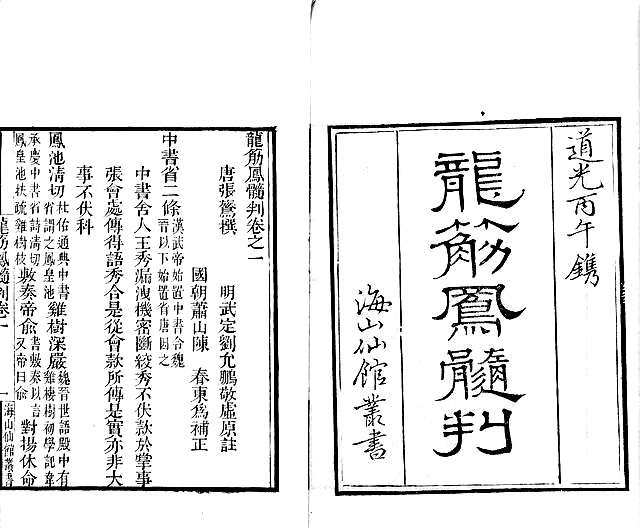 道光丙午鐫
龍筋鳳髓判
海山仙館叢書
龍筋鳳髓判卷之一
唐張鷟撰　明武定劉允鵬敬虛原註
國朝蕭山陳　春東為補正
中書省二條漢武帝始置中書合魏晉以下始置省唐因之
中書舍人王秀漏洩機密斷絞秀不伏款於掌事
張會處傳得語秀合是從會款所傳是實亦非大
事不伏科
鳳池清切杜佑通典中書省謂之鳳皇池雞樹深嚴魏晉世語殿中有雞棲樹初學記韋
承慶中書省詩清切鳳皇池扶疏雞樹枝敷奏帝俞書敷奏以言又帝曰俞對揚休命
龍筋鳳髓判卷一
一
海山仙館叢書